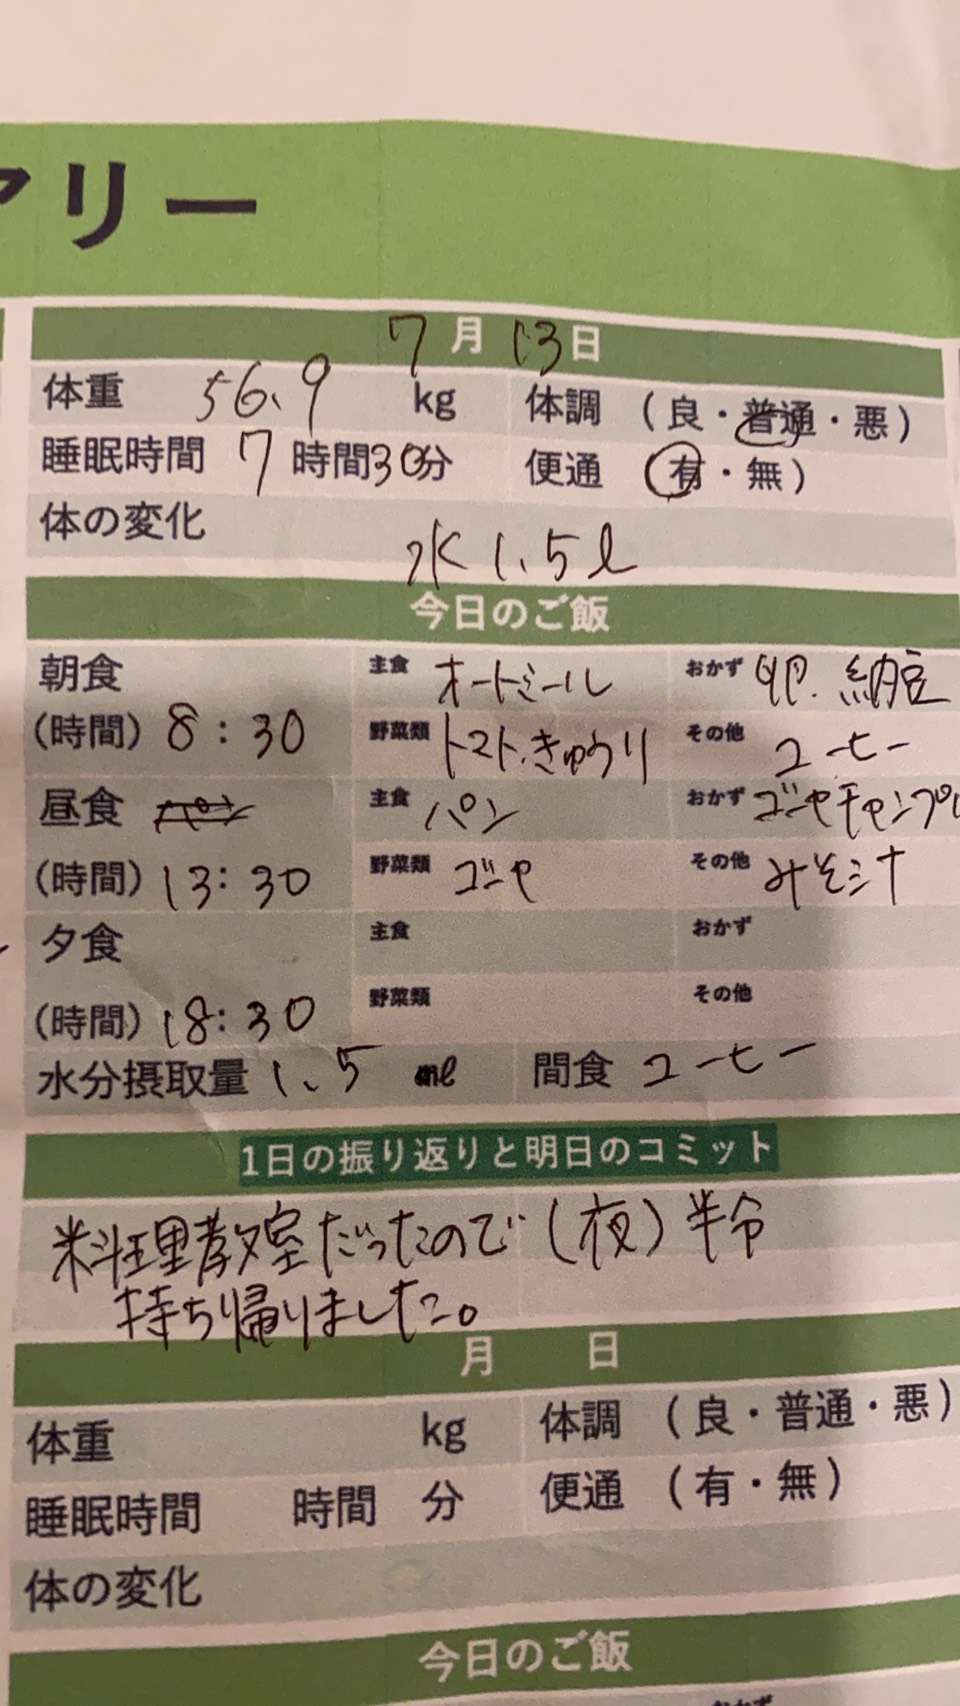 アリー
7月13日
体重 56.9 kg 体調 (良・普通・悪)
睡眠時間 7時間30分 便通 (有・無)
体の変化
水1.5l
今日のご飯
朝食 主食 オートミール おかず 卵.納豆
(時間) 8:30 野菜類 トマト.きゅうり その他 コーヒー
昼食 パン 主食 パン おかず ゴーヤチャンプル
(時間) 13:30 野菜類 ゴーヤ その他 みそ汁
夕食 主食 おかず
(時間) 18:30 野菜類 その他
水分摂取量 1.5 ml 間食 コーヒー
1日の振り返りと明日のコミット
料理教室だったので(夜)半分
持ち帰りました。
月 日
体重 kg 体調 (良・普通・悪)
睡眠時間 時間 分 便通 (有・無)
体の変化
今日のご飯
おかず